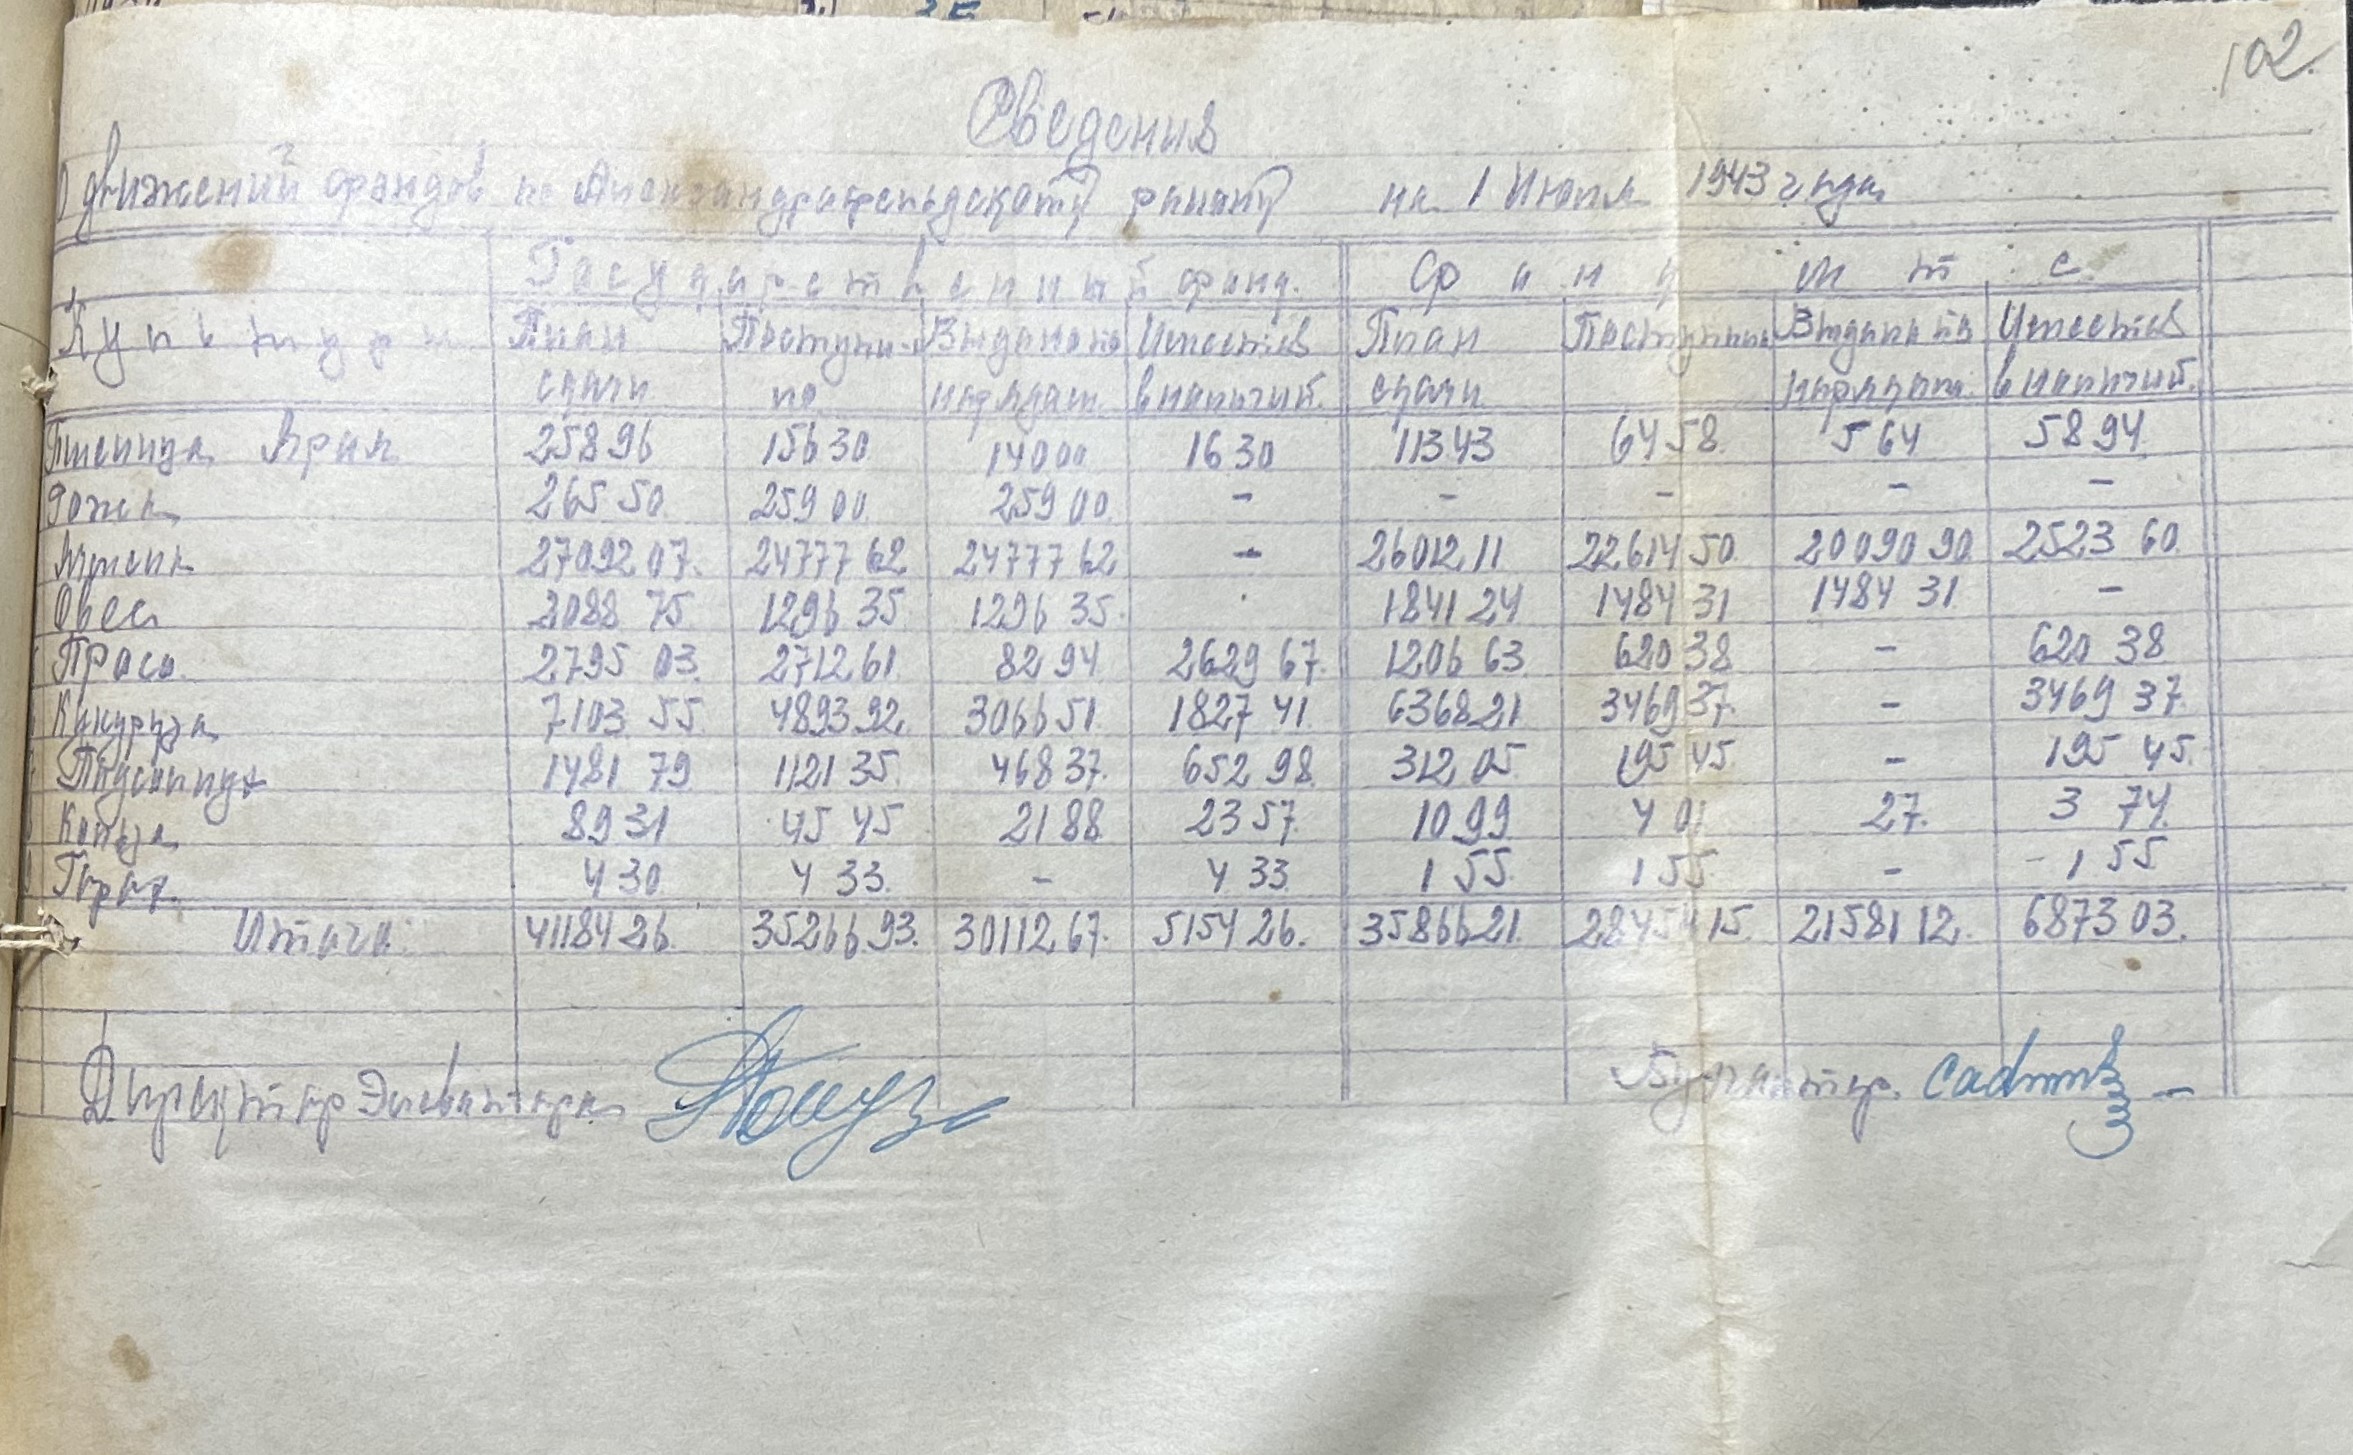 102.
Сведения
О движений фондов по Александрафельдскому району на 1 Июля 1943 года
Государственный фонд. Фонд МТС
Культуры План Поступи- Выдано по Имеется План Поступило Выдано по Имеется
сдачи ло нарядам в наличий. сдачи нарядам в наличий.
Пшеница Яран 258 96 156 30 140 00 16 30 113 43 64 58 5 64 58 94
Рожь 265 50 259 00 259 00 - - - - -
Ячмень 27092 07 24777 62 24777 62 - 26012 11 22614 50 20090 90 2523 60
Овес 2088 75 1296 35 1296 35 1841 24 1484 31 1484 31 -
Просо 2795 03 2712 61 82 94 2629 67 1206 63 620 38 - 620 38
Кукуруза 7103 55 4893 92 3066 51 1827 41 6368 21 3469 37 - 3469 37
Подсолнух 1481 79 1121 35 468 37 652 98 312 05 195 45 - 195 45
Кользы 89 31 45 45 21 88 23 57 10 99 4 01 27 3 74
Горох 4 30 4 33 - 4 33 1 55 1 55 - 1 55
Итого: 41184 26 35266 93 30112 67 5154 26 35866 21 28454 15 21581 12 6873 03
Директор Элеватора Бухгалтер.